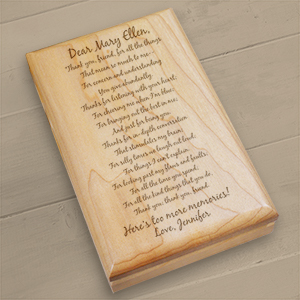 Dear Mary Ellen,
Thank you, friend, for all the things
That mean so much to me--
For concern and understanding
You give abundantly.
Thanks for listening with your heart;
For cheering me when I'm blue;
For bringing out the best in me;
And just for being you.
Thanks for in-depth conversation
That stimulates my brain;
For silly times we laugh out loud;
For things I can't explain.
For looking past my flaws and faults;
For all the time you spend;
For all the kind things that you do,
Thank you, thank you, friend.
Here's too more memories!
Love, Jennifer